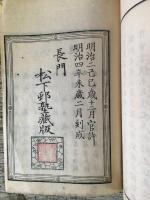 明治二己巳歳十二月官許
明治四辛未歳二月刻成
長門
松下邨塾藏版